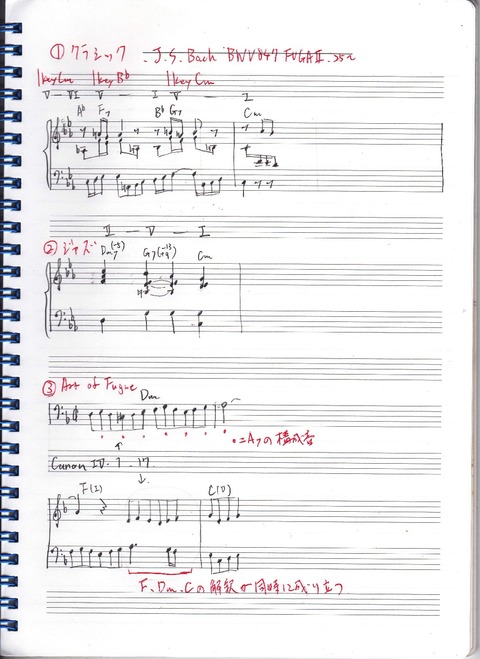 ① クラシック J.S. Bach BWV847 FUGA II.
key Cm key B♭ key Cm
V — VI V — I V — I
A♭ F7 B♭ G7 Cm
II — V — I
② ジャズ Dm7(-5) G7 Cm
③ Art of Fugue
Dm
・=A7の構成音
Canon IV. 17
F(I) C(V)
F、Dm、Cの解釈が同時に成り立つ